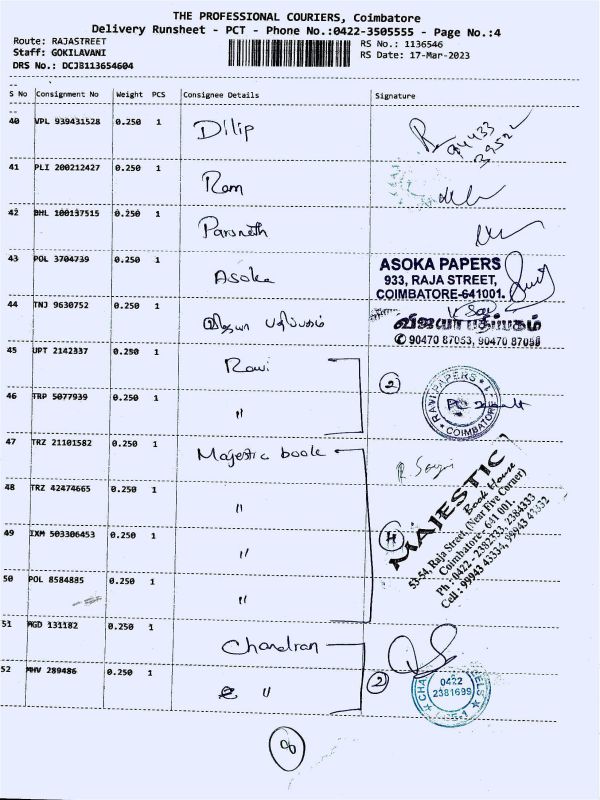 THE PROFESSIONAL COURIERS, Coimbatore
Delivery Runsheet - PCT - Phone No.:0422-3505555 - Page No.:4
Route: RAJASTREET
Staff: GOKILAVANI
DRS No.: DCJB113654604
RS No.: 1136546
RS Date: 17-Mar-2023
S No Consignment No Weight PCS Consignee Details Signature
40 VPL 939431528 0.250 1 Dilip
94433
39522
41 PLI 200212427 0.250 1 Ram
42 BHL 100137515 0.250 1 Parsnath
43 POL 3704739 0.250 1 Asoka
ASOKA PAPERS
933, RAJA STREET,
COIMBATORE-641001.
44 TNJ 9630752 0.250 1 விஜயா பதிப்பகம்
விஜயா பதிப்பகம்
90470 87053, 90470 87058
45 UPT 2142337 0.250 1 Ravi
2
RAVI PAPERS
COIMBATORE-1
46 TRP 5077939 0.250 1 "
47 TRZ 21101582 0.250 1 Majestic book
4
MAJESTIC
Book House
53-54, Raja Street, (Near Five Corner)
Coimbatore - 641 001.
Ph : 0422 - 2382333, 2384333
Cell : 99943 43334, 99943 43332
48 TRZ 42474665 0.250 1 "
49 IXM 503306453 0.250 1 "
50 POL 8584885 0.250 1 "
51 MGD 131182 0.250 1 Chandran
52 MHV 289486 0.250 1 "
2
0422
2381699
8